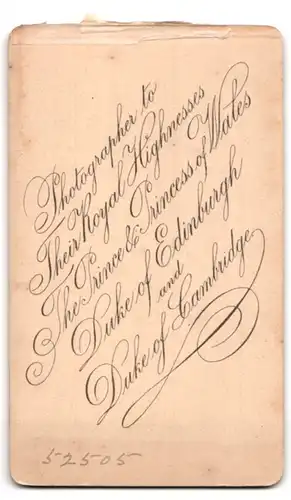 Photographer to
Their Royal Highnesses
The Prince & Princess of Wales
Duke of Edinburgh
and
Duke of Cambridge
52505